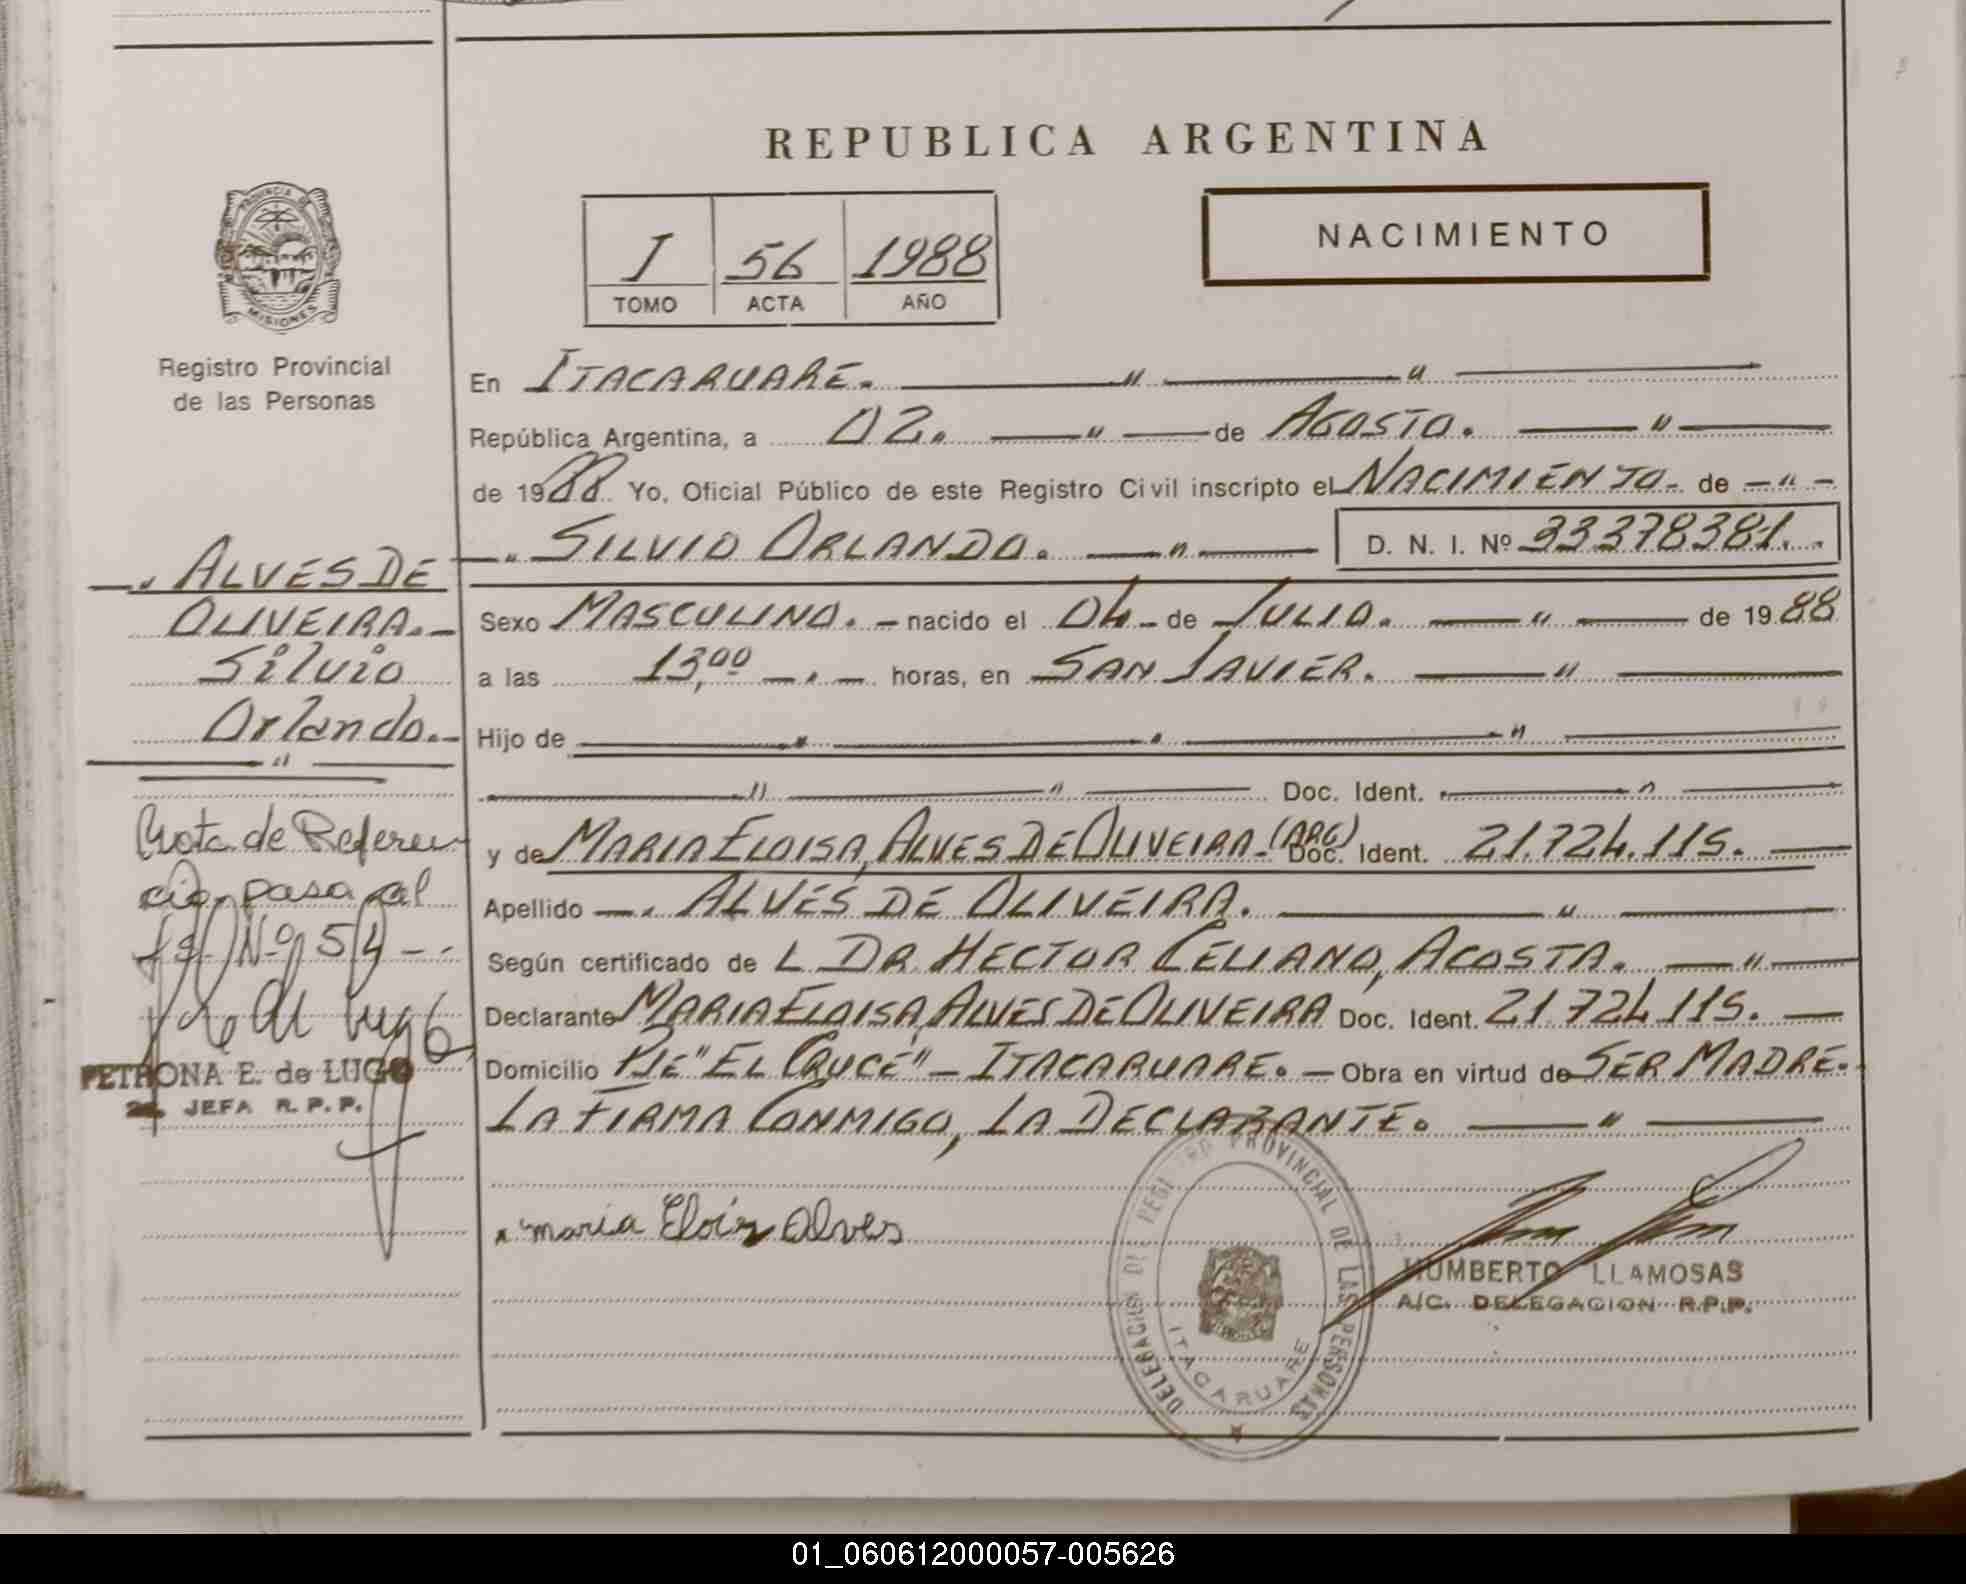 REPUBLICA ARGENTINA
PROVINCIA DE
MISIONES
Registro Provincial
de las Personas
I 56 1988
TOMO ACTA AÑO
NACIMIENTO
En ITACARUARE. " "
República Argentina, a 02. " de AGOSTO. "
de 1988 Yo, Oficial Público de este Registro Civil inscripto el NACIMIENTO - de - " -
SILVIO ORLANDO. " D. N. I. Nº 33378381.
Sexo MASCULINO. - nacido el 04 - de JULIO. " de 1988
a las 13,00 horas, en SAN JAVIER. "
Hijo de
Doc. Ident.
y de MARIA ELOISA, ALVES DE OLIVEIRA - (ARG) Doc. Ident. 21.724.115.
Apellido ALVES DE OLIVEIRA. "
Según certificado de L DR HECTOR CELIANO, ACOSTA. "
Declarante MARIA ELOISA, ALVES DE OLIVEIRA Doc. Ident. 21.724.115.
Domicilio PJE "EL CRUCE" - ITACARUARE. - Obra en virtud de SER MADRE.
LA FIRMA CONMIGO, LA DECLARANTE. "
x maria Alves
HUMBERTO LLAMOSAS
A/C. DELEGACION R.P.P.
DELEGACION DEL REGISTRO PROVINCIAL DE LAS PERSONAS
ITACARUARE
ALVES DE
OLIVEIRA. -
Silvio
Orlando. -
Nota de Referen
cia pasa al
Nº 54
PETRONA E. de LUGO
JEFA R.P.P.
01_060612000057-005626